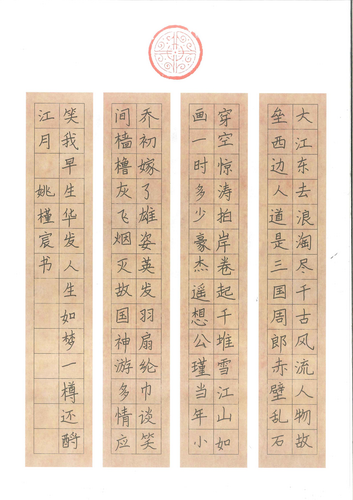 大江东去浪淘尽千古风流人物故
垒西边人道是三国周郎赤壁乱石
穿空惊涛拍岸卷起千堆雪江山如
画一时多少豪杰遥想公瑾当年小
乔初嫁了雄姿英发羽扇纶巾谈笑
间樯橹灰飞烟灭故国神游多情应
笑我早生华发人生如梦一樽还酹
江月 姚槿宸书